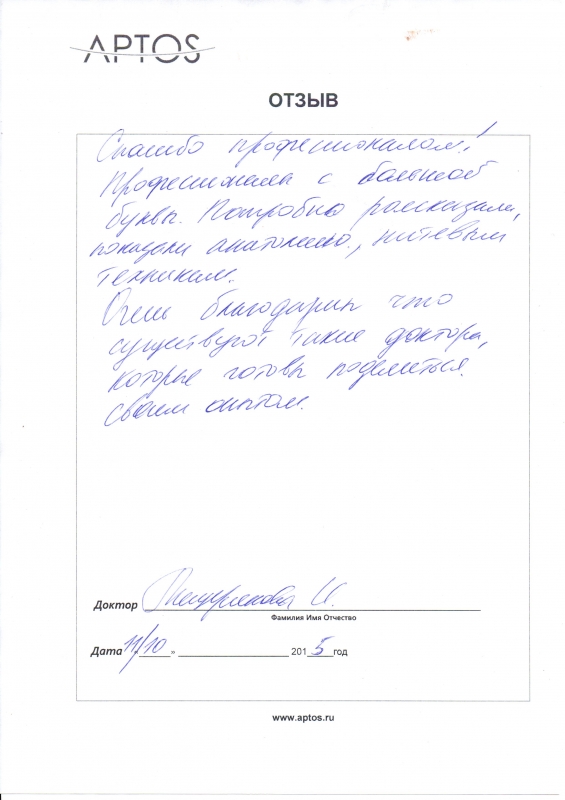 APTOS
ОТЗЫВ
Спасибо профессионалам!
Профессионалы с большой
буквы. Подробно рассказали,
показали анатомию, нитевым
техникам.
Очень благодарны что
существуют такие доктора,
которые готовы поделиться
своим опытом.
Доктор И.
Фамилия Имя Отчество
Дата «11/10» 2015 год
www.aptos.ru